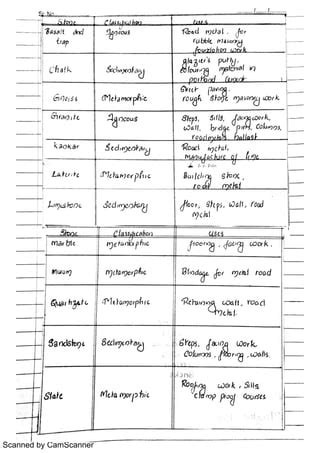 Stone Classification Uses
Basalt and trap Igneous Road metal, for
rubble masonry
foundation work
Chalk Sedimentary glazier's putty,
colouring material in
portland cement
Gneiss Metamorphic Street paving,
rough stone masonry work
Granite Igneous Steps, sills, facing work,
wall, bridge piers, columns,
road metal, ballast
kankar Sedimentary Road metal,
manufacture of lime
Laterite Metamorphic Building stone,
road metal
Limestone Sedimentary floor, steps, wall, road
metal
Stone Classification Uses
marble metamorphic flooring, facing work.
Murum metamorphic Blindage for metal road
Quartzite Metamorphic Retaining wall, road
metal.
Sandstone Sedimentary Steps, facing work
Columns, flooring, walls.
Slate Metamorphic Roofing work, Sills
damp proof courses
Scanned by CamScanner